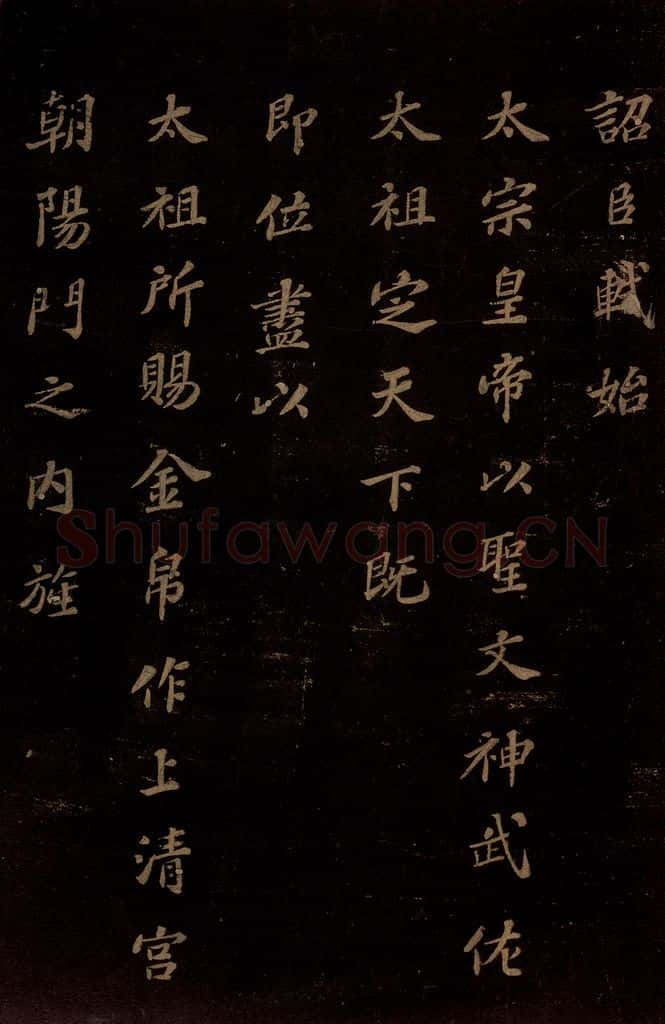 詔臣軾始
太宗皇帝以聖文神武佐
太祖定天下既
即位盡以
太祖所賜金帛作上清宮
朝陽門之內旌
Shufawang.CN